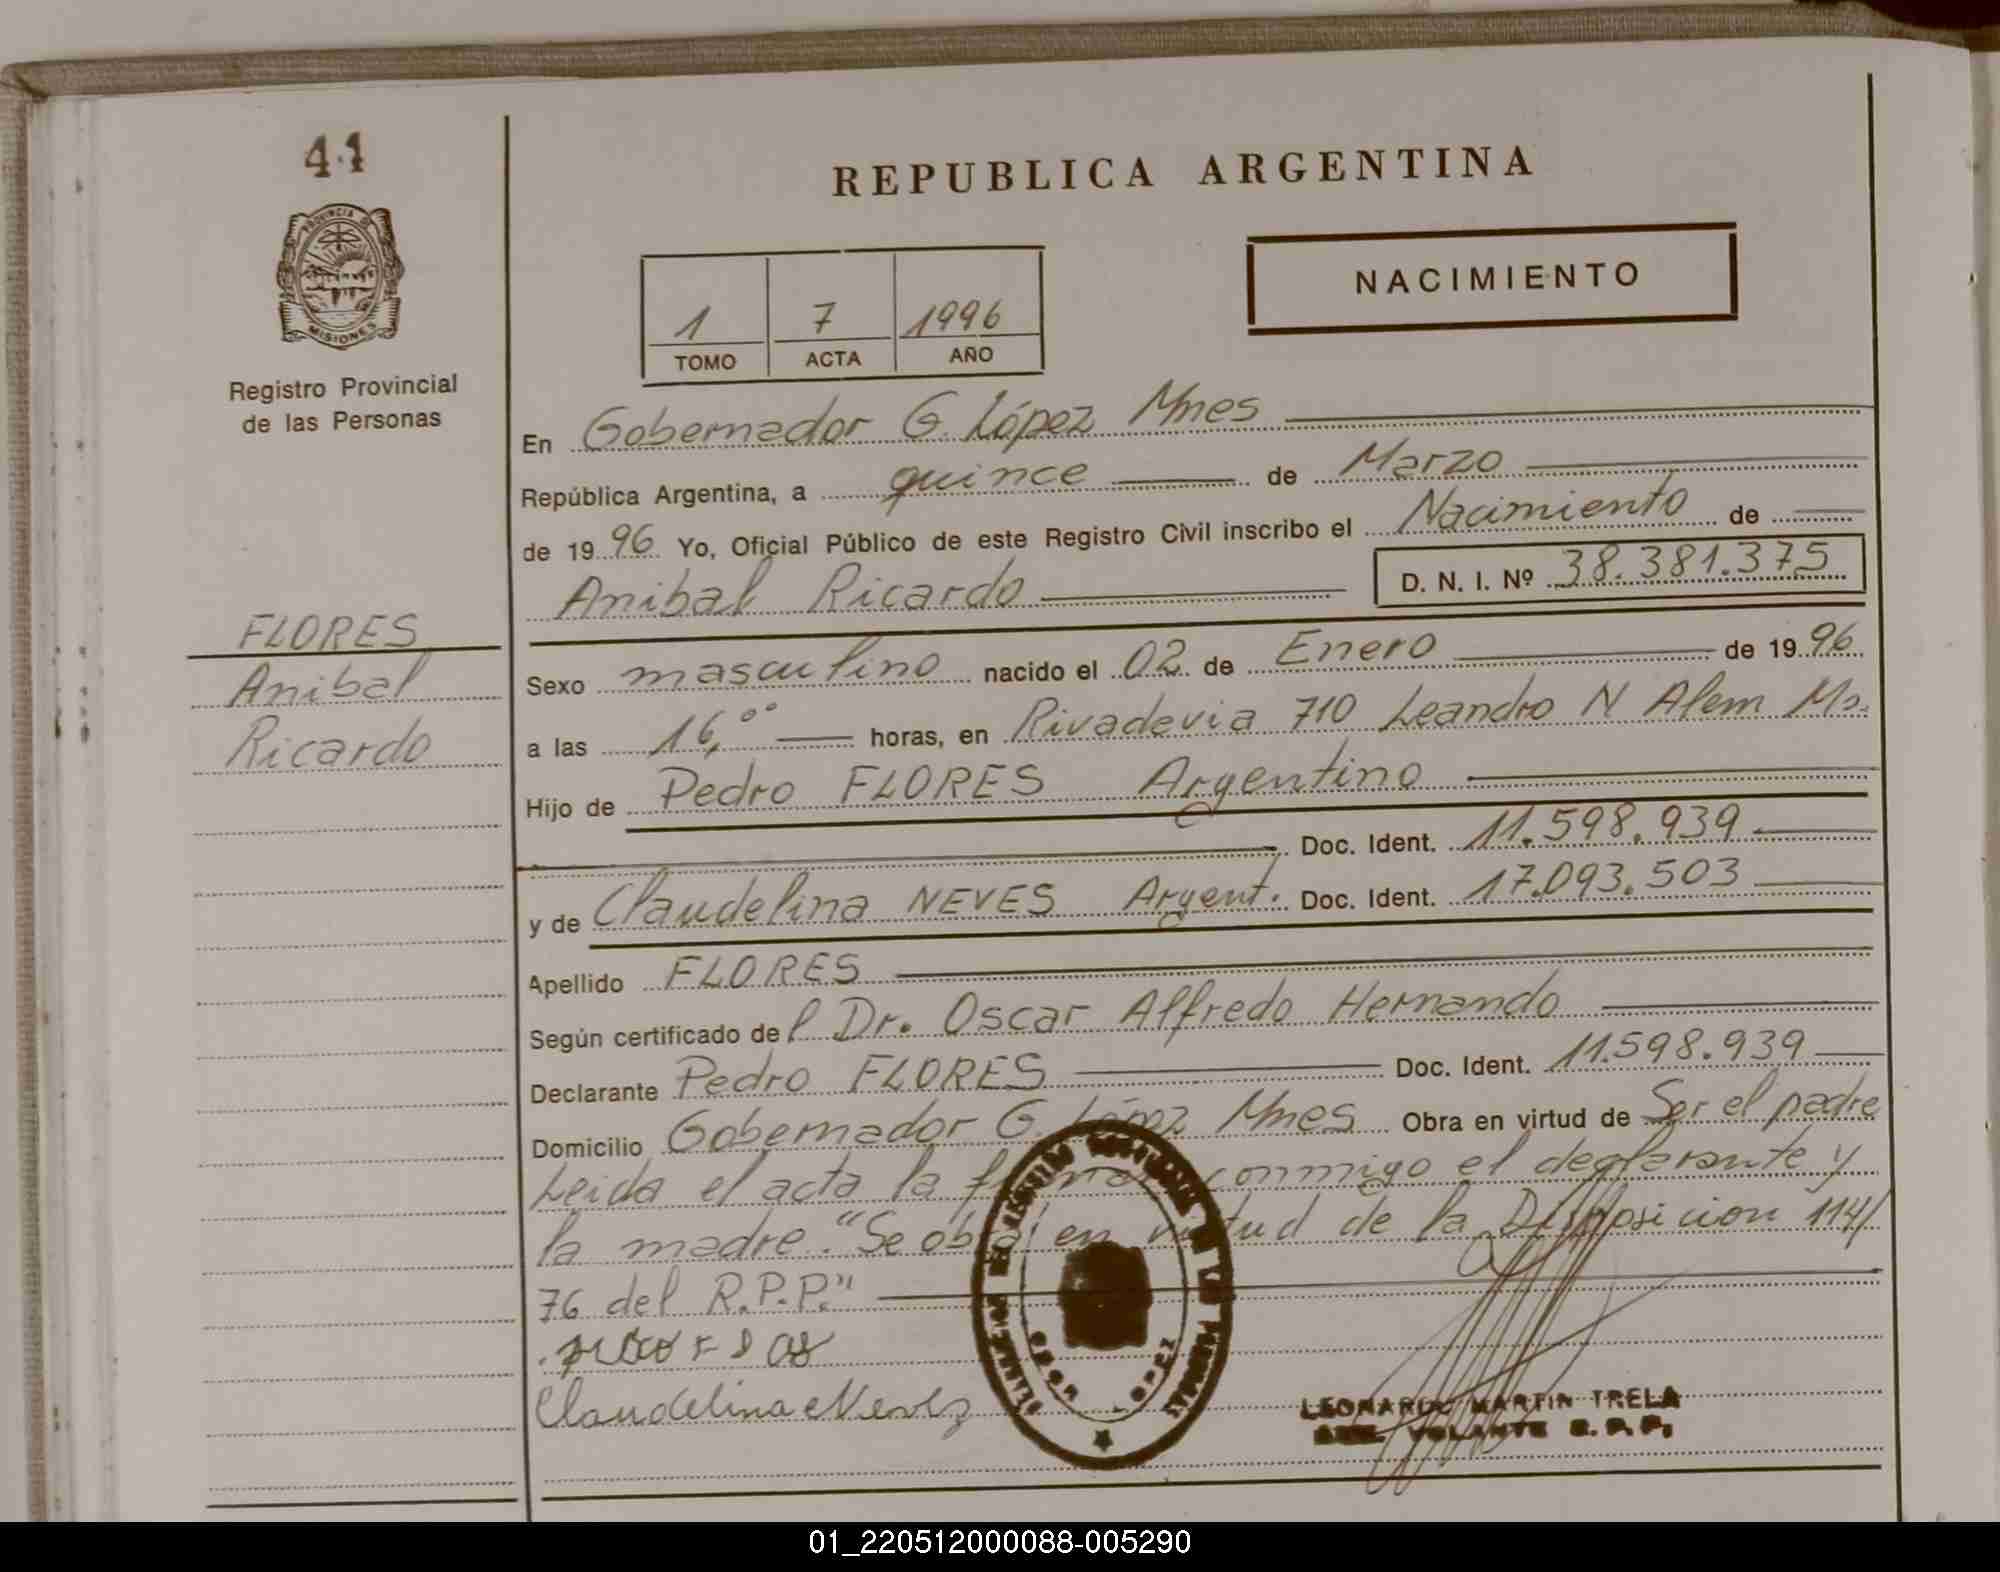 41
REPUBLICA ARGENTINA
PROVINCIA DE
MISIONES
NACIMIENTO
1 7 1996
TOMO ACTA AÑO
Registro Provincial
de las Personas
En Gobernador G. López Mnes
República Argentina, a quince de Marzo
de 1996 Yo, Oficial Público de este Registro Civil inscribo el Nacimiento de
Anibal Ricardo D. N. I. Nº 38.381.375
FLORES
Anibal
Ricardo
Sexo masculino nacido el 02 de Enero de 1996
a las 16,°° horas, en Rivadavia 710 Leandro N Alem Ms.
Hijo de Pedro FLORES Argentino
Doc. Ident. 11.598.939
y de Claudelina NEVES Argent. Doc. Ident. 17.093.503
Apellido FLORES
Según certificado del Dr. Oscar Alfredo Hernando
Declarante Pedro FLORES Doc. Ident. 11.598.939
Domicilio Gobernador G. López Mnes Obra en virtud de Ser el padre
Leida el acta la firman conmigo el declarante y
la madre. "Se obra en virtud de la Disposicion 114/
76 del R.P.P."
Claudelina Neves
LEONARDO MARTIN TRELA
VOLANTE R. P. P.
01_220512000088-005290